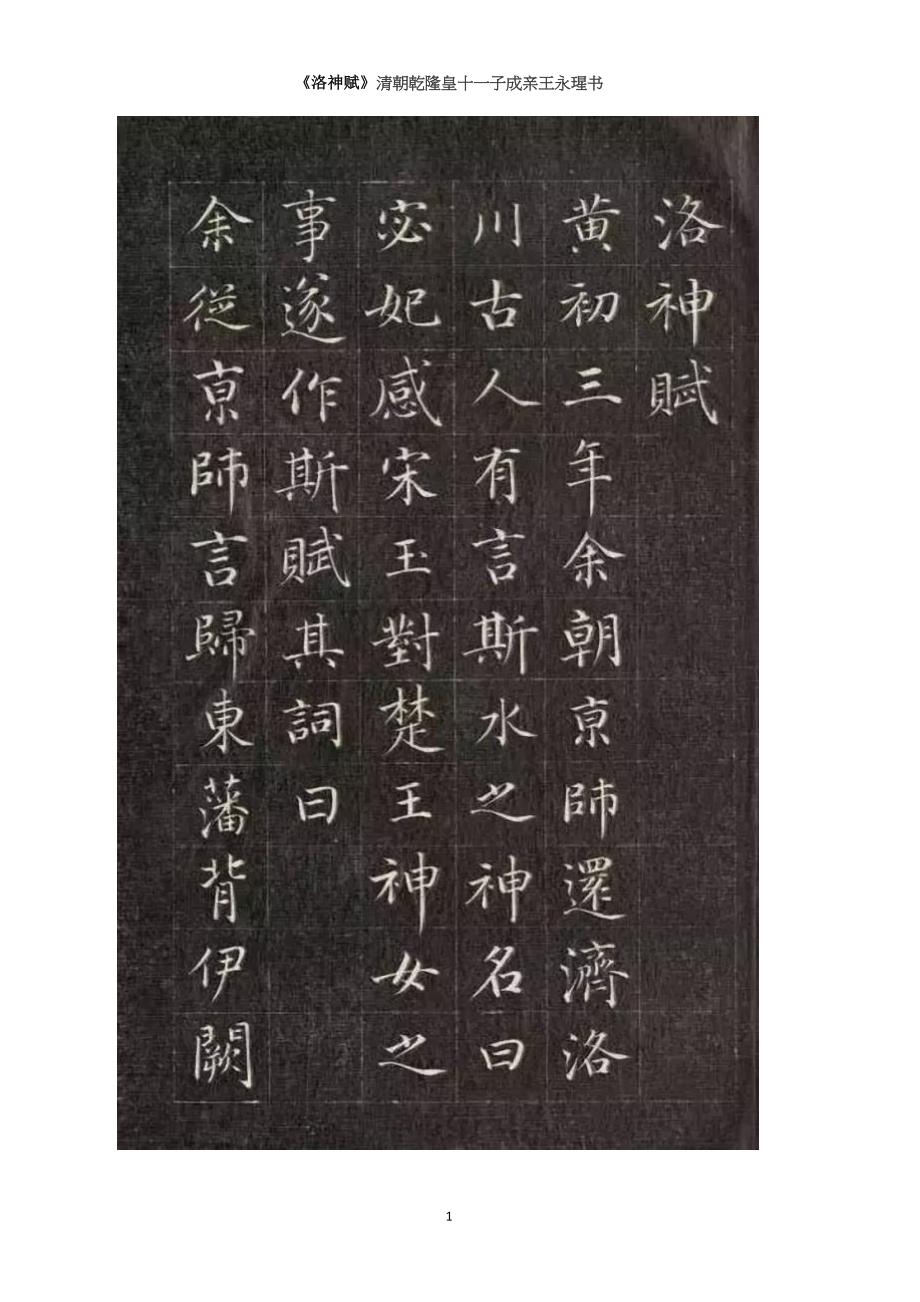 《洛神赋》清朝乾隆皇十一子成亲王永瑆书
洛神賦
黄初三年余朝京師還濟洛
川古人有言斯水之神名曰
宓妃感宋玉對楚王神女之
事遂作斯賦其詞曰
余從京師言歸東藩背伊闕
1